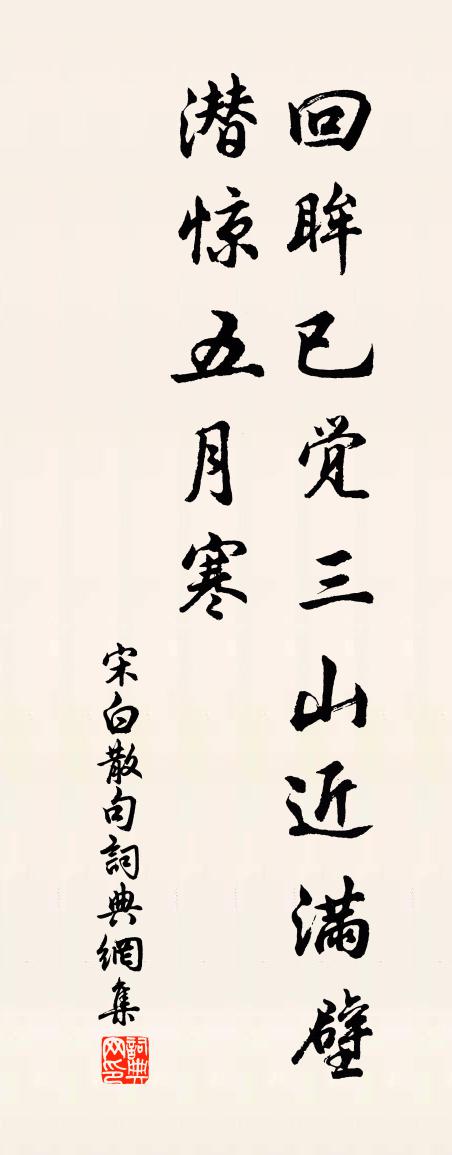 回眸已觉三山近满壁
潜惊五月寒
宋白散句詞典網集
詞典网印